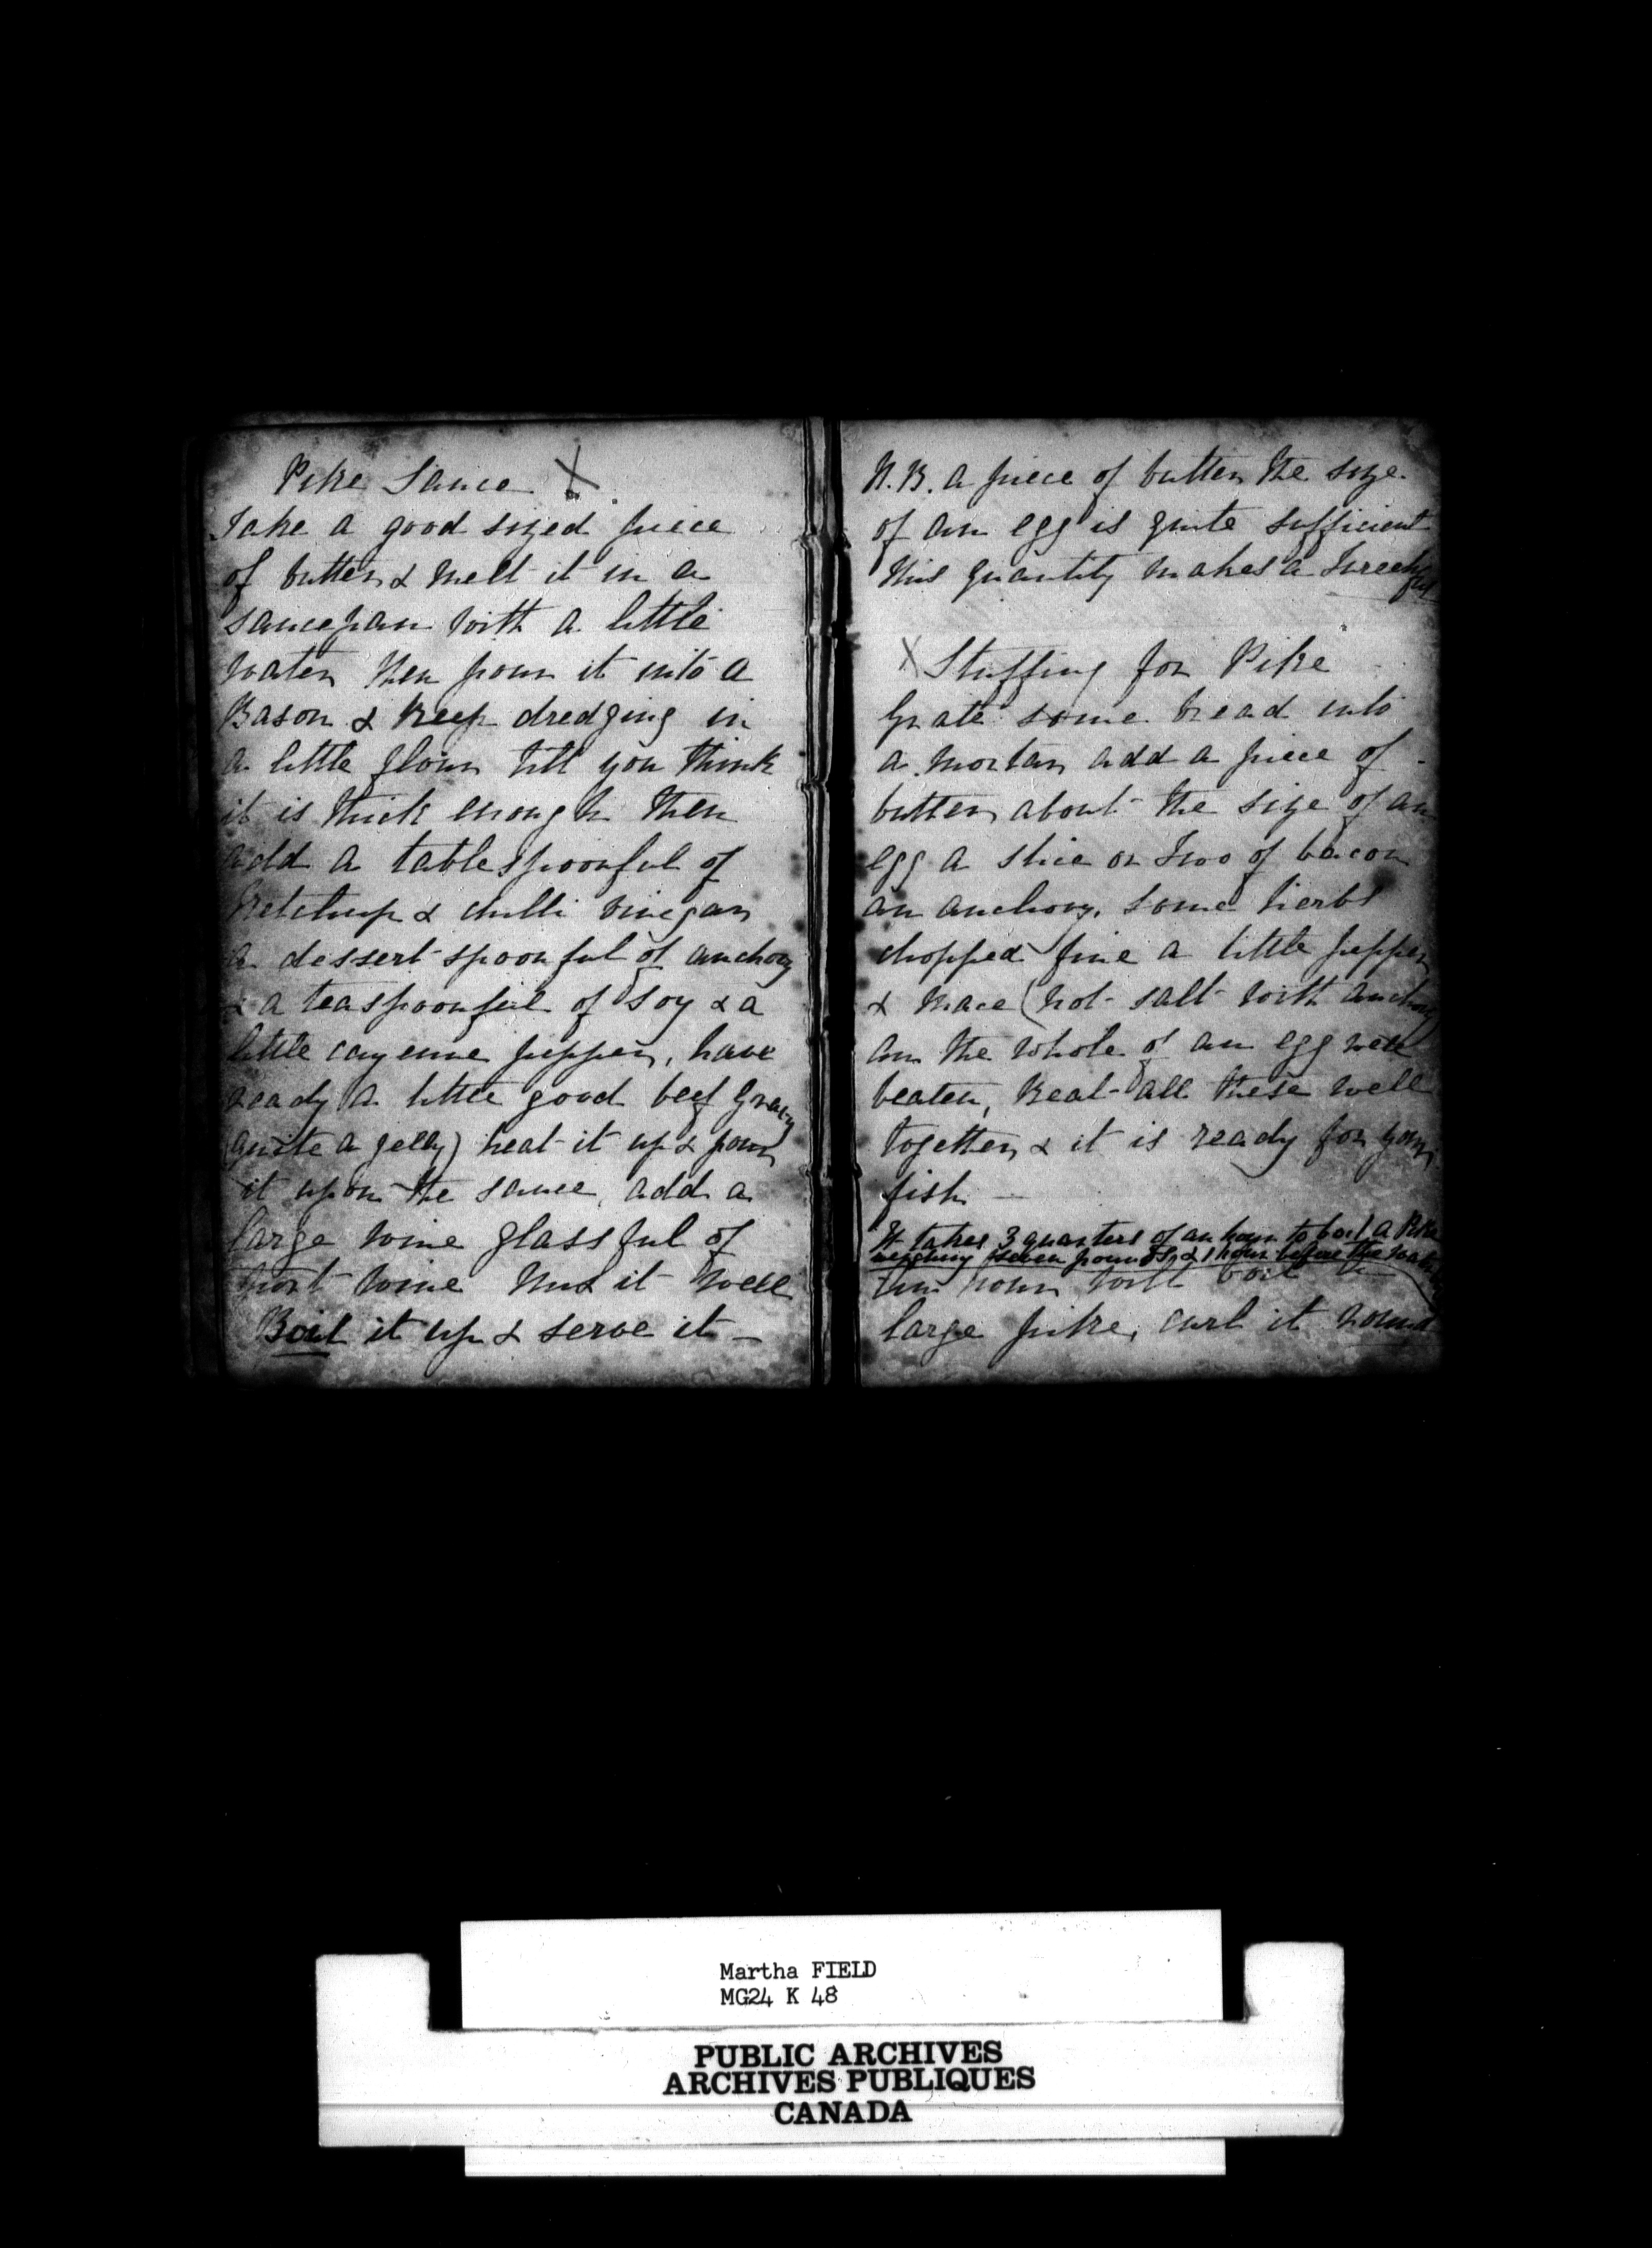 Pike Sauce X
Take a good sized piece
of butter & melt it in a
saucepan with a little
water then pour it into a
Bason & keep dredging in
a little flour till you think
it is thick enough then
add a tablespoonful of
Ketchup & chilli vinegar
a dessert spoonful of anchovy
& a teaspoonful of soy & a
little cayenne pepper, have
ready a little good beef Gravy
(quite a jelly) heat it up & pour
it upon the sauce, add a
large wine glassful of
port wine mix it well
Boil it up & serve it —
N.B. a piece of butter the size
of an egg is quite sufficient
this quantity makes a Tureen
full
X Stuffing for Pike
Grate some bread into
a mortar add a piece of
butter about the size of an
egg a slice or two of bacon
an anchovy, some herbs
chopped fine a little pepper
& mace (not salt with anchovy)
an the whole of an egg well
beaten, Beat all these well
together & it is ready for your
fish —
It takes 3 quarters of an hour to boil a Pike
weighing seven pounds, & 1 hour before the water
hour will boil a
large pike, curl it round
Martha FIELD
MG24 K 48
PUBLIC ARCHIVES
ARCHIVES PUBLIQUES
CANADA